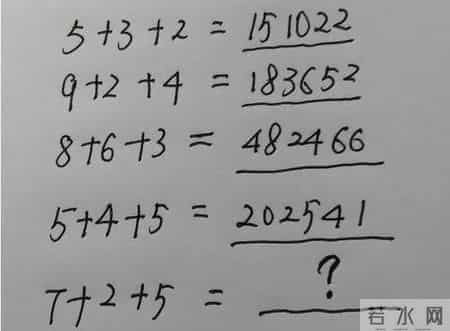 5+3+2 = 151022
9+2+4 = 183652
8+6+3 = 482466
5+4+5 = 202541
7+2+5 = ?
若水网